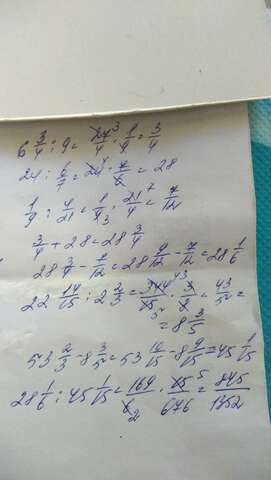 6 3/4 : 9 = 24³/4 · 1/9 = 3/4
24 : 6/7 = 24⁴ · 7/6 = 28
1/9 : 4/21 = 1/9₃ · 21⁷/4 = 7/12
3/4 + 28 = 28 3/4
28 3/4 - 7/12 = 28 9/12 - 7/12 = 28 1/6
22 14/15 : 2 2/3 = 344⁴³/15₅ · 3/8 = 43/5 =
= 8 3/5
53 2/3 - 8 3/5 = 53 10/15 - 8 9/15 = 45 1/15
28 1/6 : 45 1/15 = 169/6₂ · 15⁵/676 = 845/1352